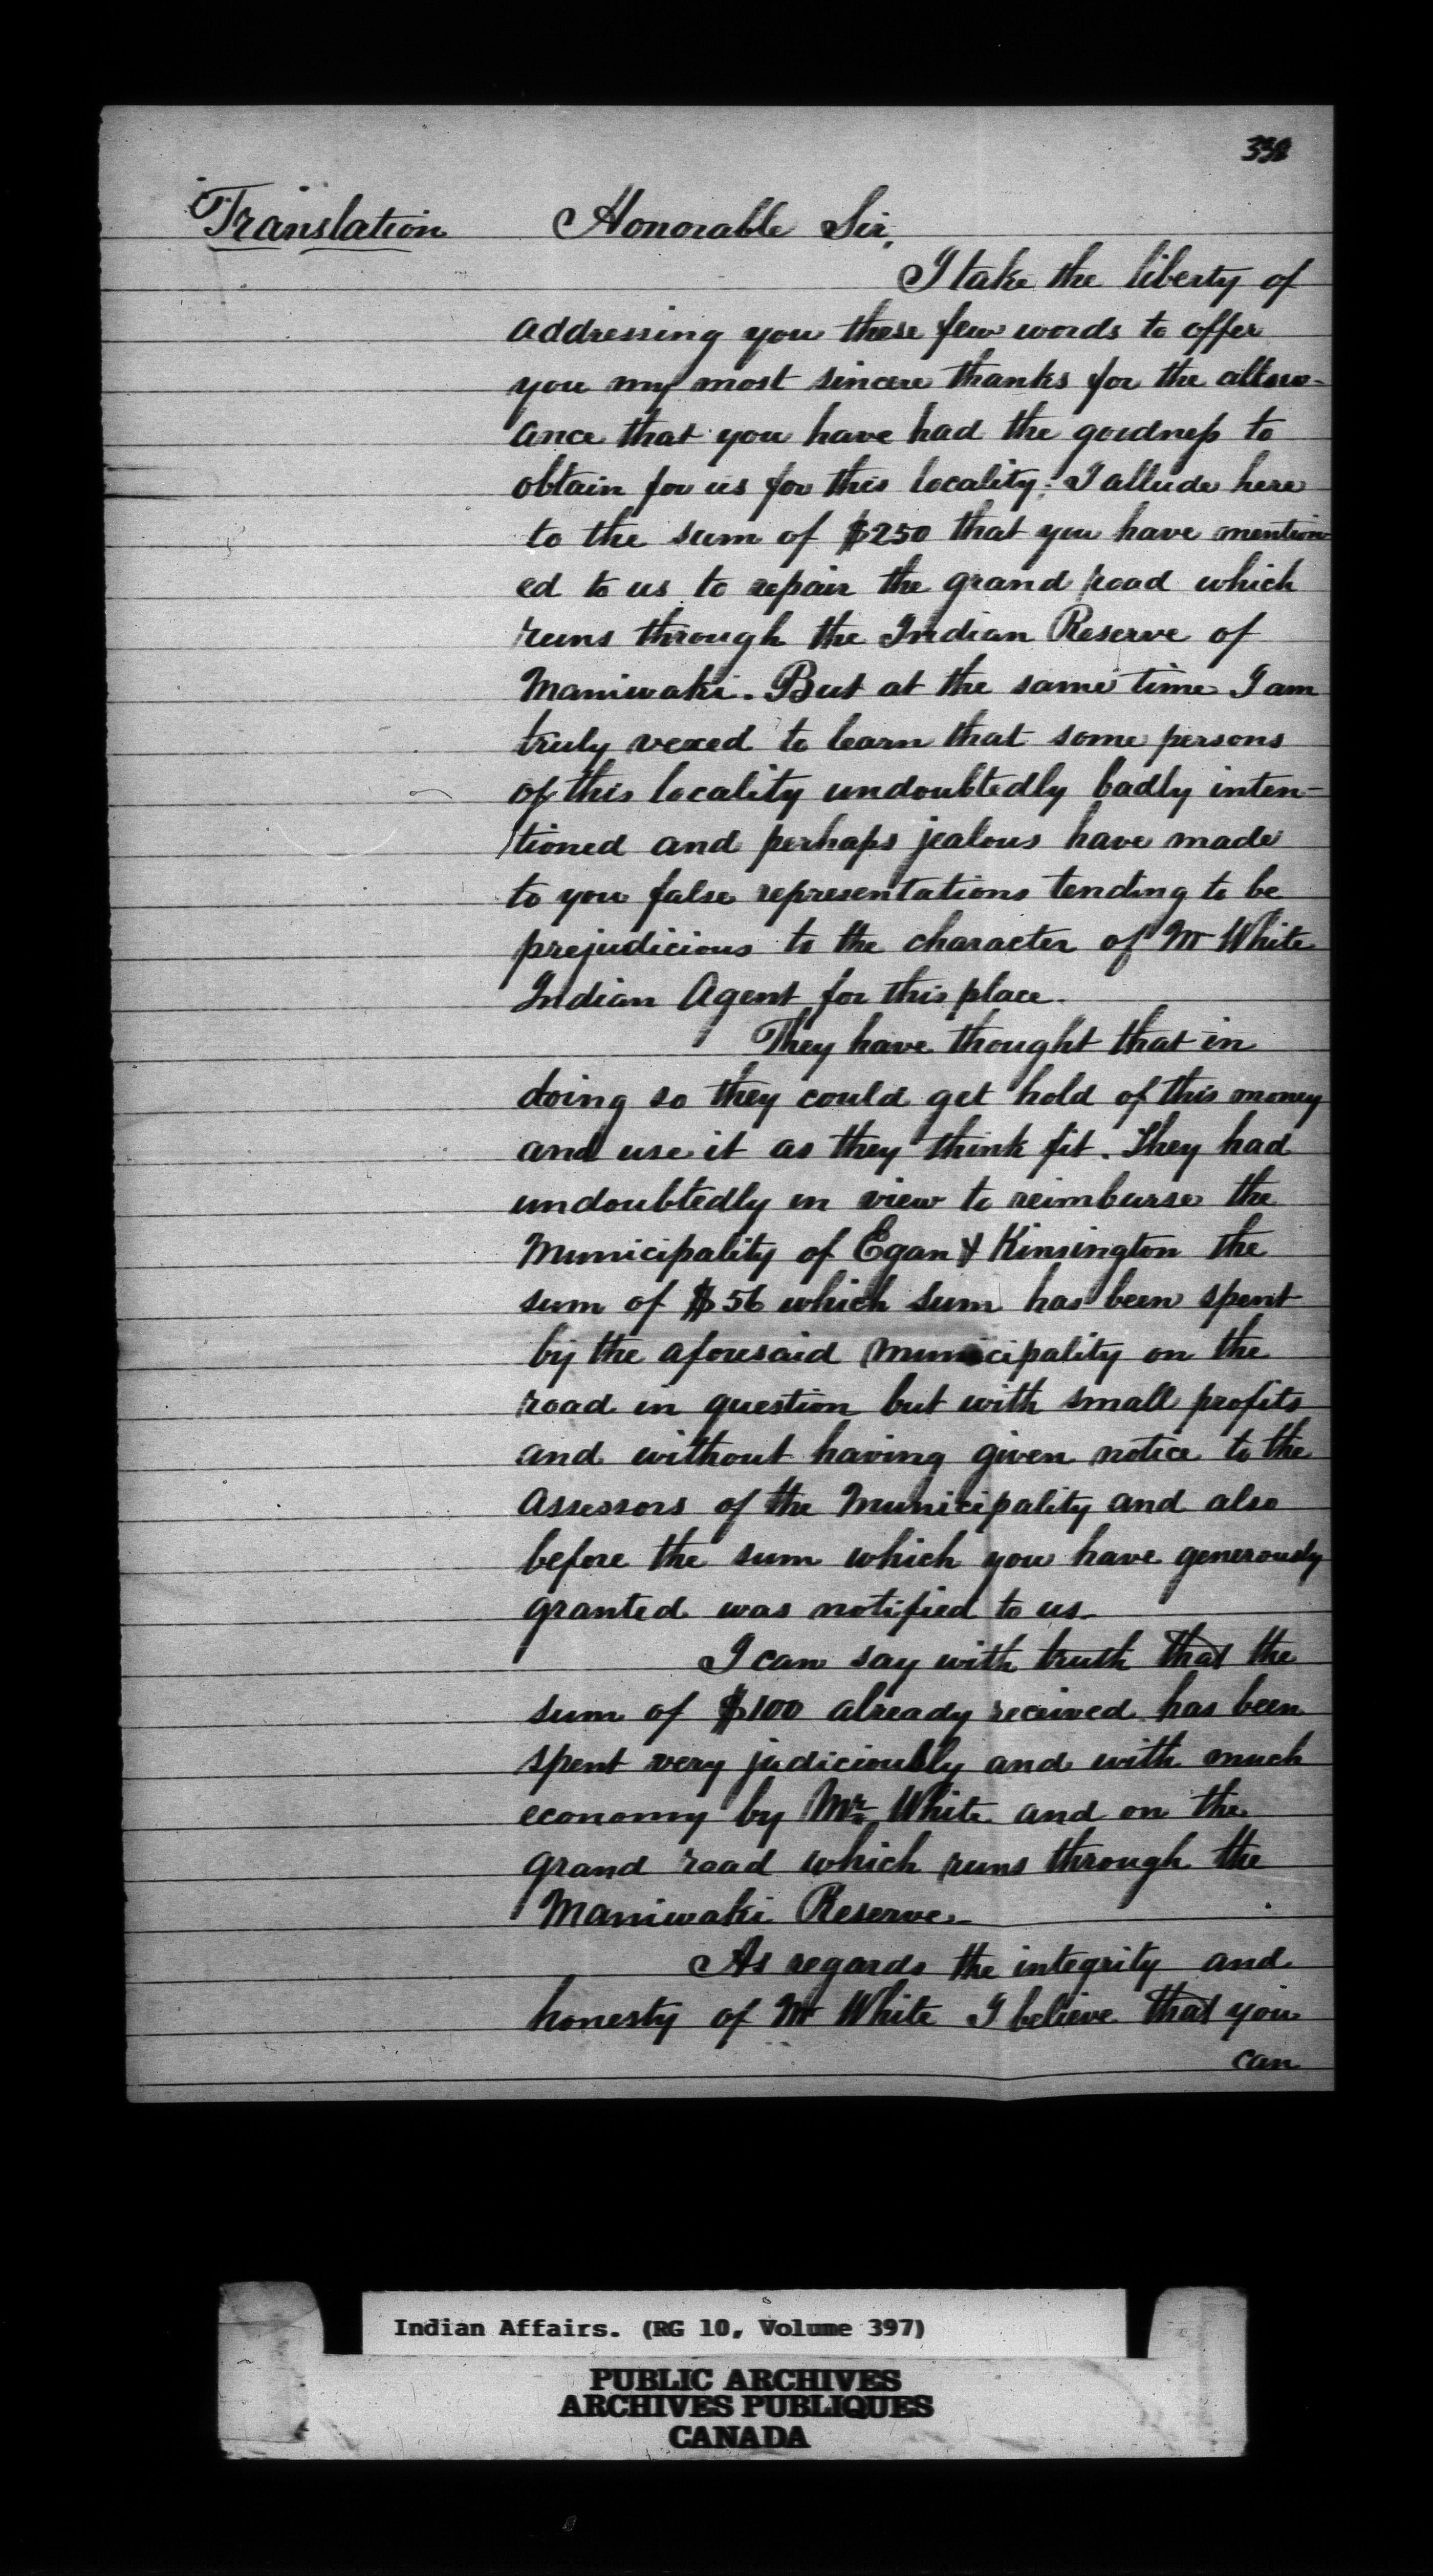 338
Translation Honorable Sir,
I take the liberty of
addressing you these few words to offer
you my most sincere thanks for the allow-
ance that you have had the goodness to
obtain for us for this locality; I allude here
to the sum of $250 that you have mention-
ed to us to repair the grand road which
runs through the Indian Reserve of
Maniwaki. But at the same time I am
truly vexed to learn that some persons
of this locality undoubtedly badly inten-
tioned and perhaps jealous have made
to you false representations tending to be
prejudicious to the character of Mr White
Indian Agent for this place.
They have thought that in
doing so they could get hold of this money
and use it as they think fit. They had
undoubtedly in view to reimburse the
Municipality of Egan & Kinsington the
sum of $56 which sum has been spent
by the aforesaid Municipality on the
road in question but with small profits
and without having given notice to the
assessors of the Municipality and also
before the sum which you have generously
granted was notified to us.
I can say with truth that the
sum of $100 already received has been
spent very judiciously and with much
economy by Mr White and on the
grand road which runs through the
Maniwaki Reserve.
As regards the integrity and
honesty of Mr White I believe that you
can
Indian Affairs. (RG 10, Volume 397)
PUBLIC ARCHIVES
ARCHIVES PUBLIQUES
CANADA